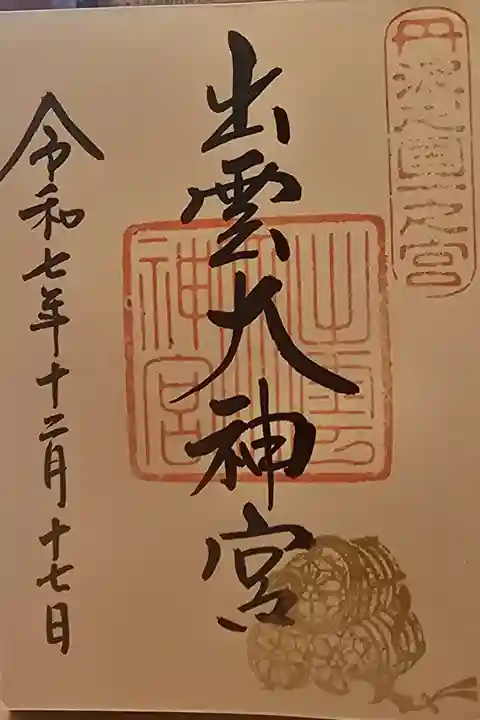 丹波之國一之宮
出雲大神宮
出雲大神宮
令和七年十二月十七日